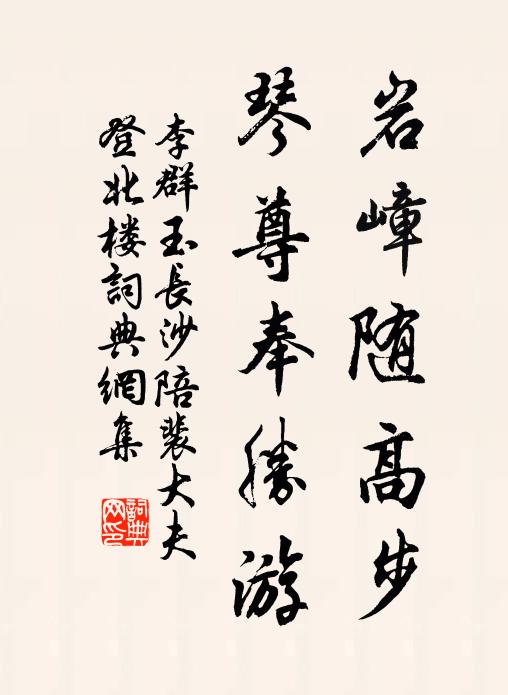 岩嶂随高步
琴尊奉勝游
李群玉長沙陪裴大夫
登北楼詞典網集
詞典网印